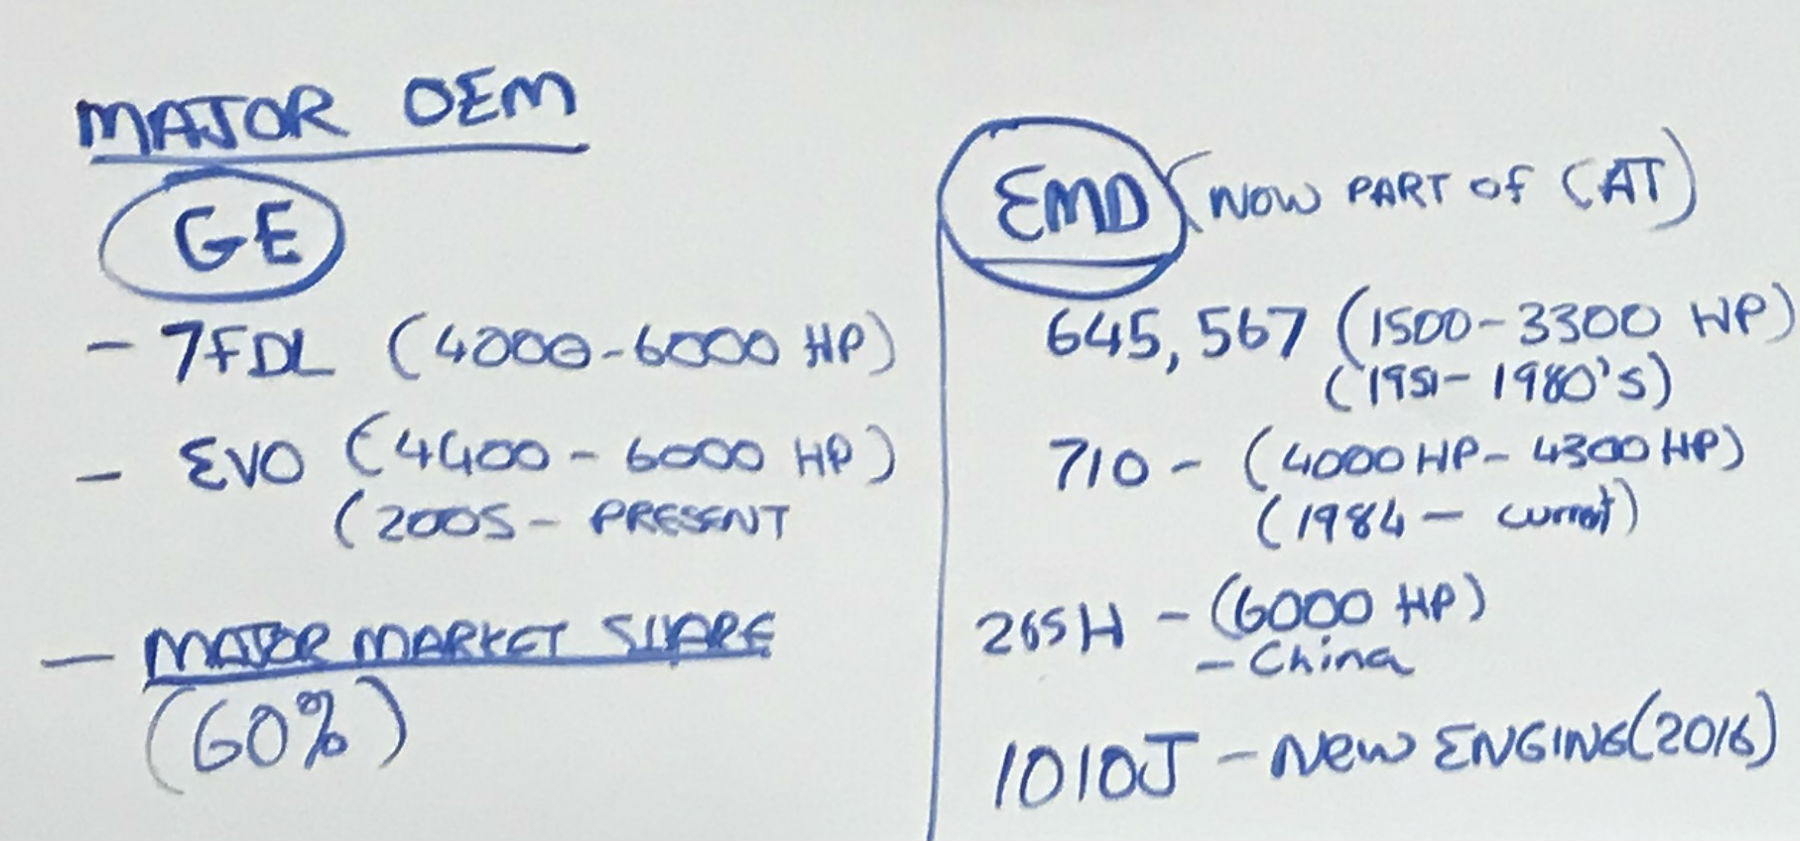 MAJOR OEM
GE
- 7FDL (4000-6000 HP)
- EVO (4400 - 6000 HP)
(2005 - PRESENT
- MAJOR MARKET SHARE
(60%)
EMD (NOW PART OF CAT)
645, 567 (1500-3300 HP)
(1951- 1980's)
710 - (4000 HP- 4300 HP)
(1984 - current)
265H - (6000 HP)
- China
1010J - New ENGINE (2016)